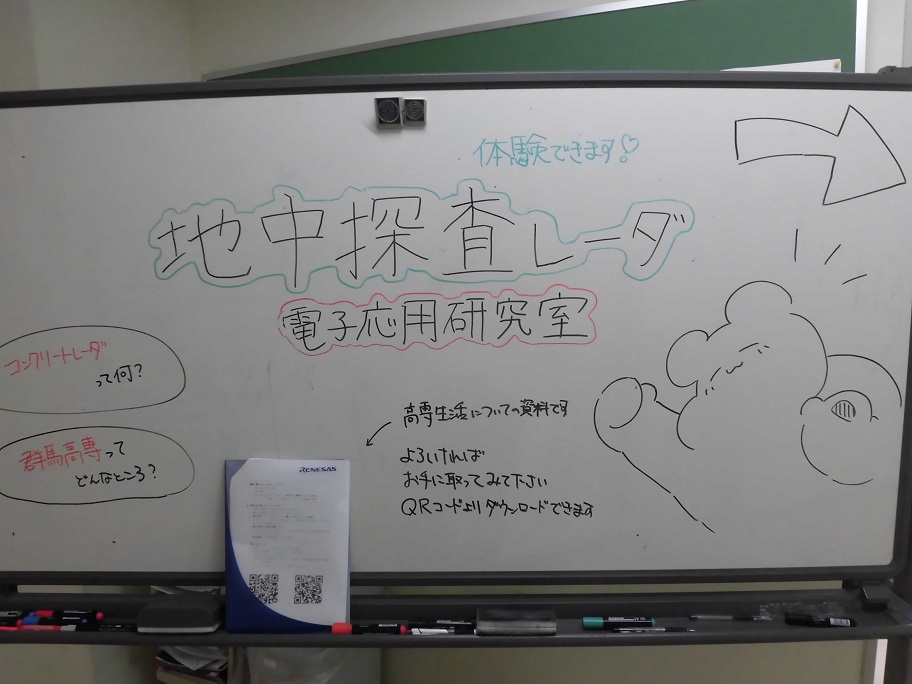 体験できます!
地中探査レーダ
電子応用研究室
コンクリートレーダ
って何?
群馬高専って
どんなところ?
高専生活についての資料です
よろしければ
お手に取ってみて下さい
QRコードよりダウンロードできます
RENESAS